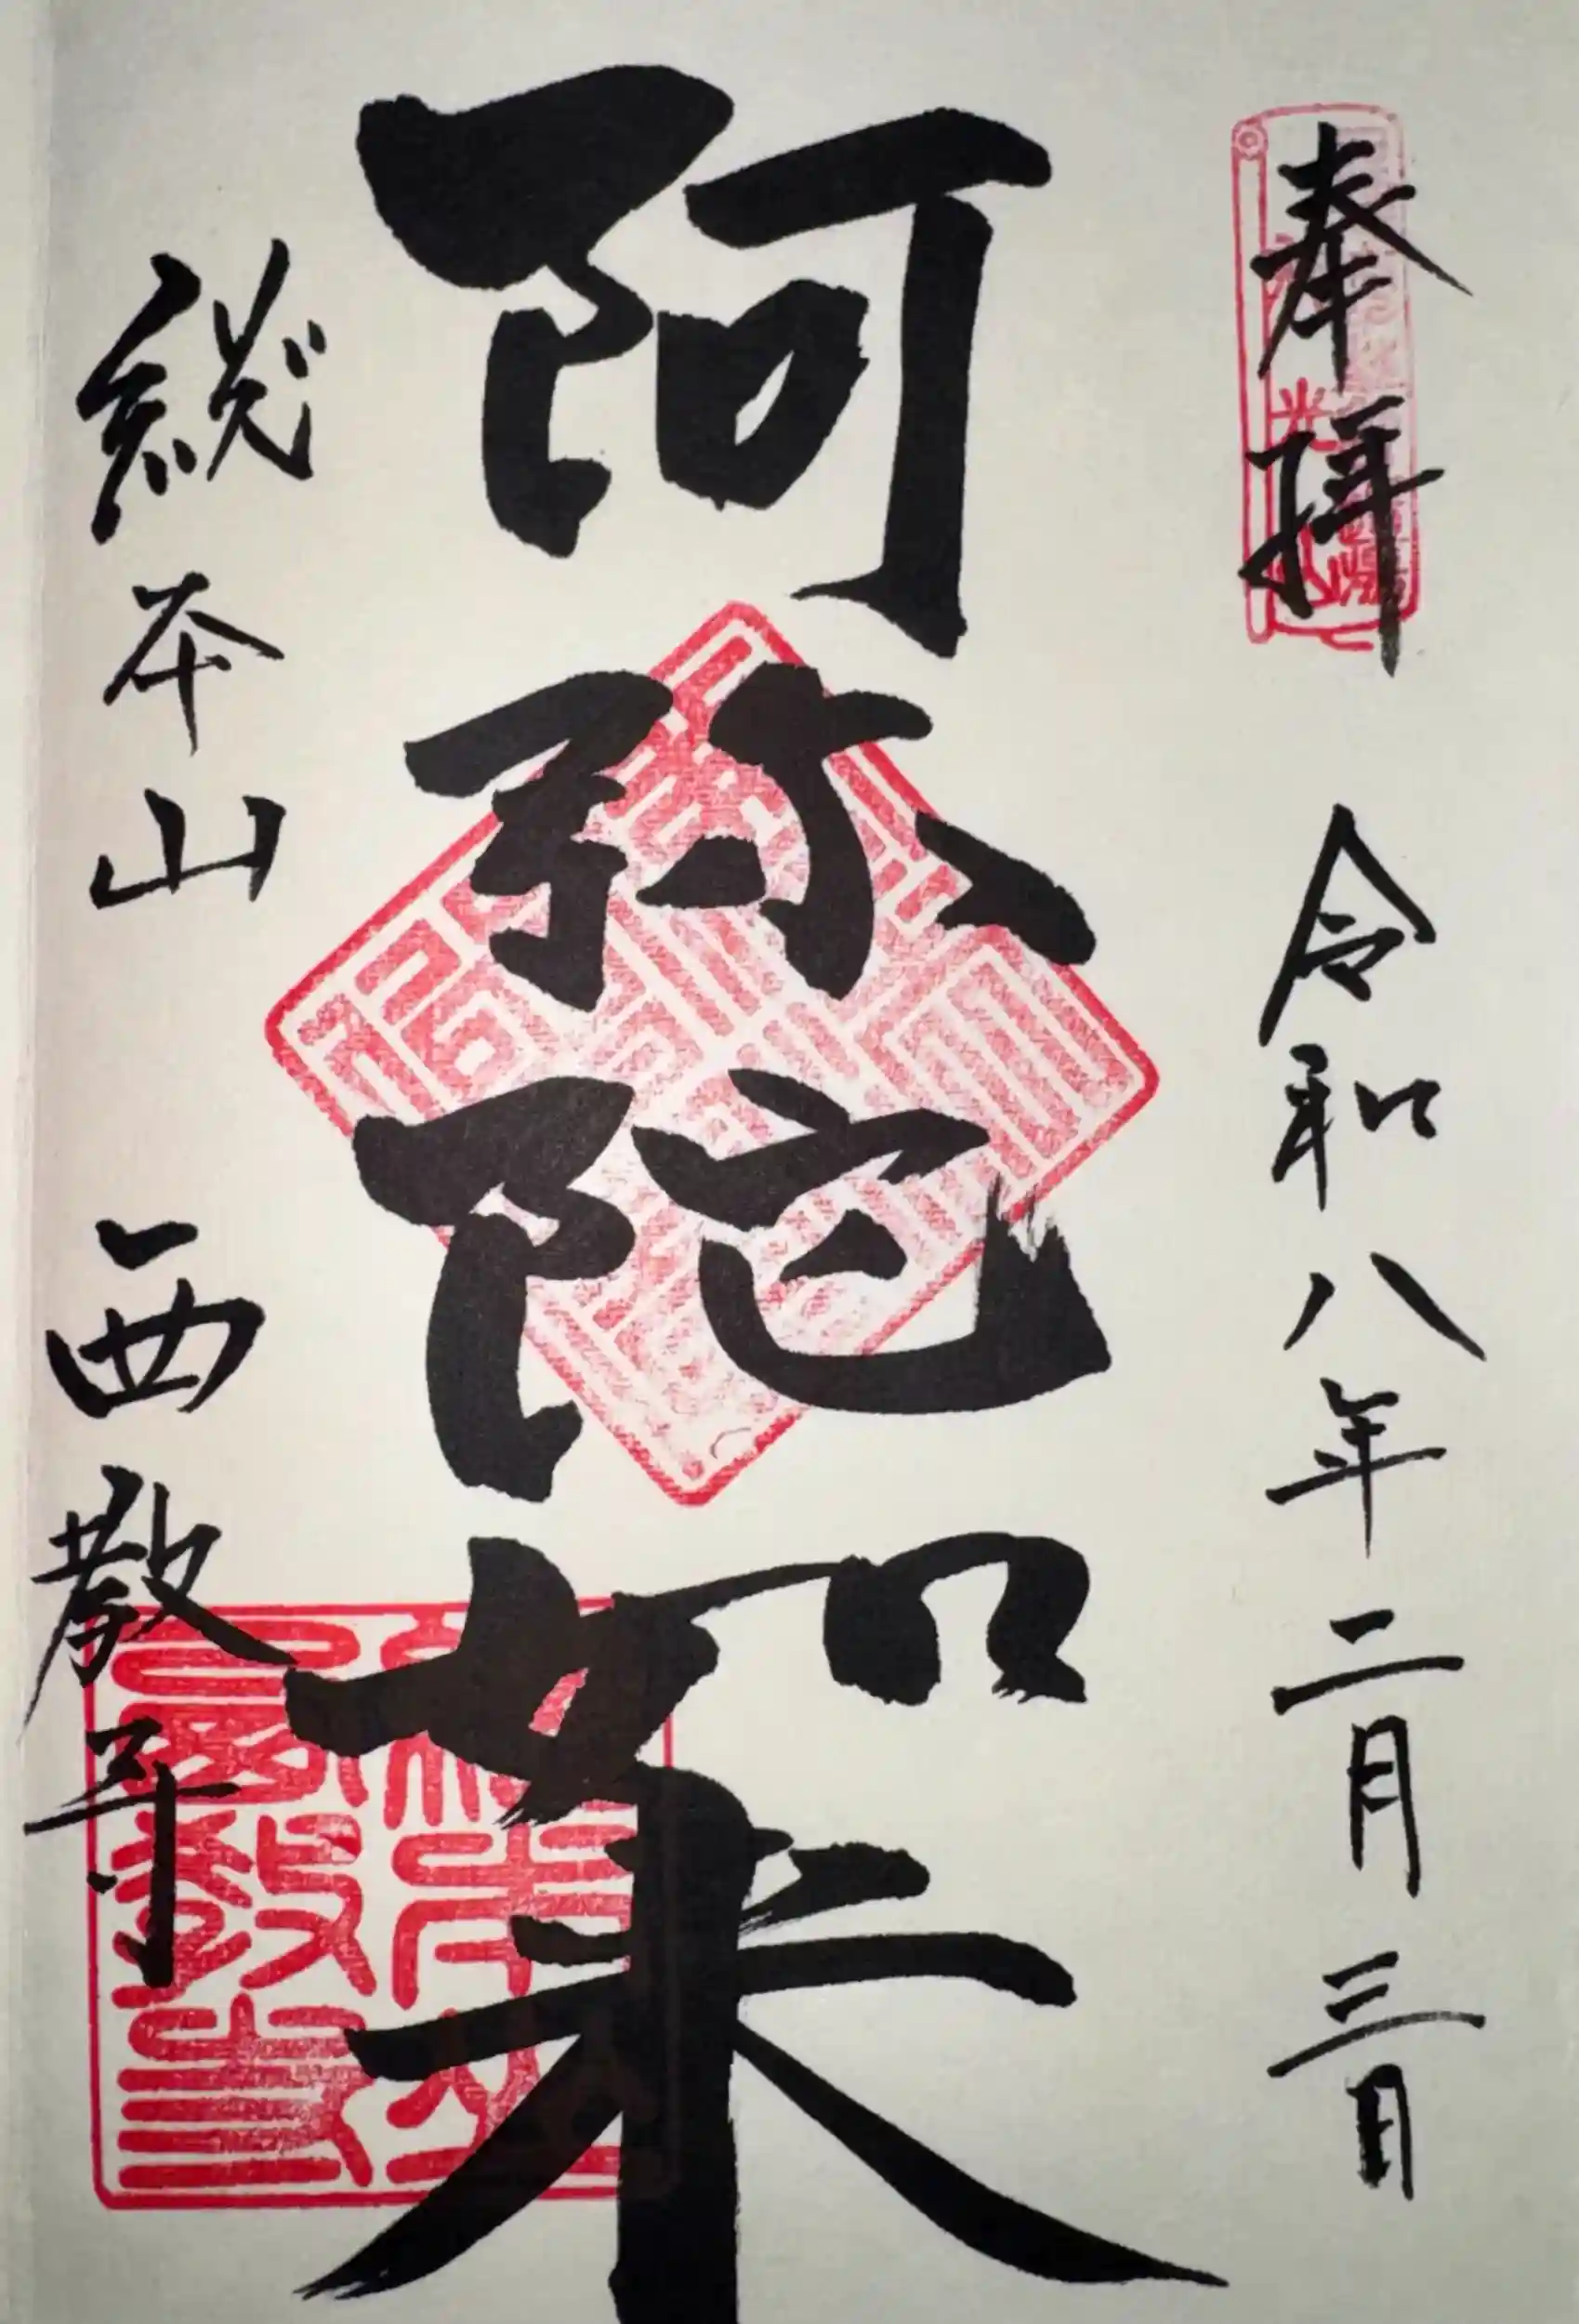 奉拝 令和八年二月三日
阿弥陀如来
総本山 西教寺